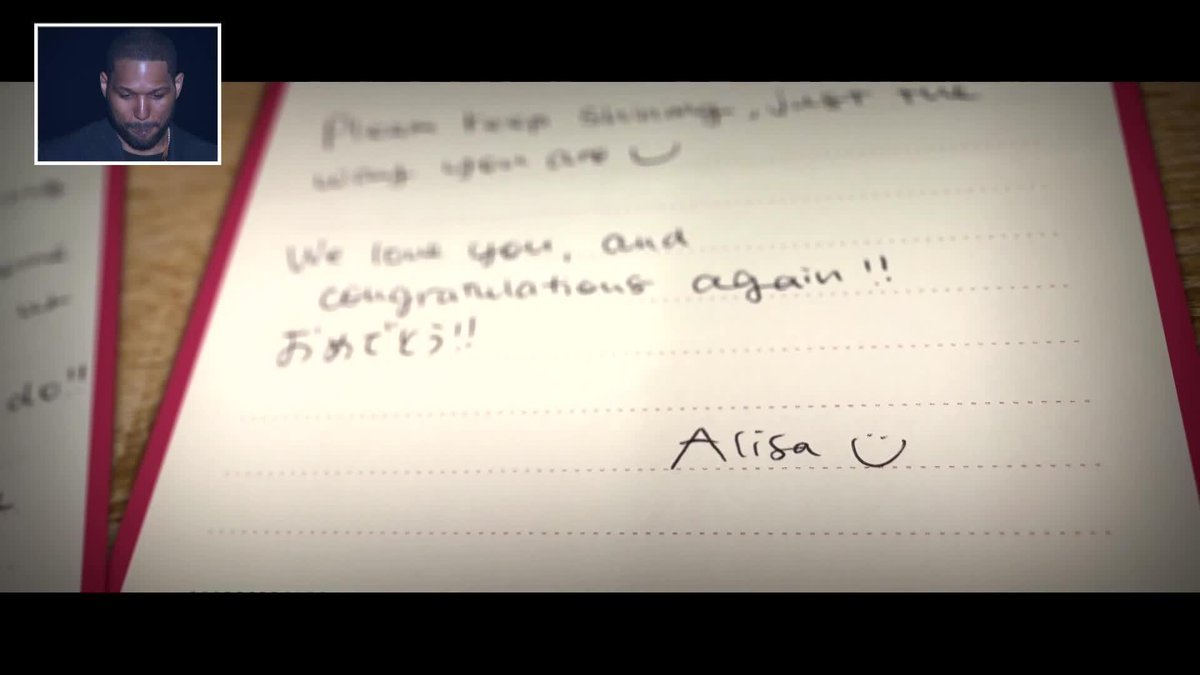 Please keep shining, just the
way you are
We love you, and
congratulations again!!
おめでとう!!
do!!
Alisa